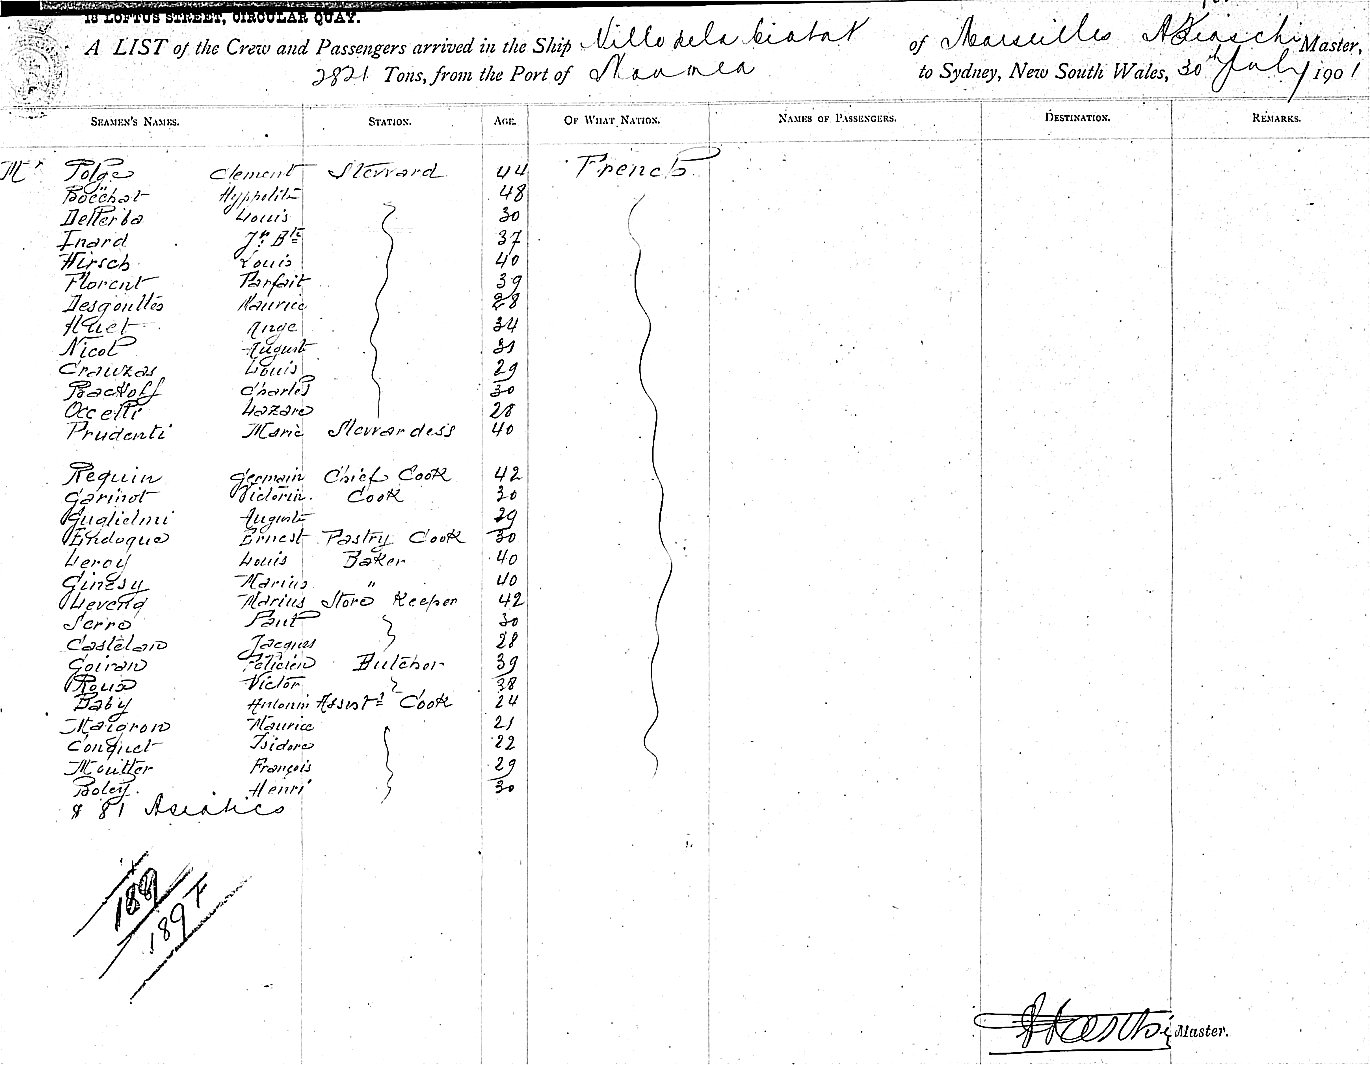 13 LOFTUS STREET, CIRCULAR QUAY.
A LIST of the Crew and Passengers arrived in the Ship Ville de la Ciotat of Marseilles Master,
2821 Tons, from the Port of Noumea to Sydney, New South Wales, 30th July 1901
SEAMEN'S NAMES. STATION. AGE. OF WHAT NATION. NAMES OF PASSENGERS. DESTINATION. REMARKS.
Mr Polge Clement Steward 44 French
Boëchat Hyppolite 48
Delterba Louis 30
Inard Jn Bte 37
Hirsch Louis 40
Florent Parfait 39
Desgouttes Maurice 28
Huet Ange 34
Nicol August 31
Crauzas Louis 29
Backoff Charles 30
Occelli Lazare 28
Prudenti Marie Stewardess 40
Requin Germain Chief Cook 42
Garinot Victorin. Cook 30
Guglielmi August 29
Endoque Ernest Pastry Cook 30
Leroy Louis Baker 40
Ginésy Marius " 40
Marius Store Keeper 42
Serre Paul 30
Castelan Jacques 28
Goiran Felicien Butcher 39
Roux Victor 38
Baby Antonin Assist Cook 24
Maigron Maurice 21
Conquet Isidore 22
Moutter François 29
Boley. Henri 30
& 81 Asiatics
189
189 F
Master.